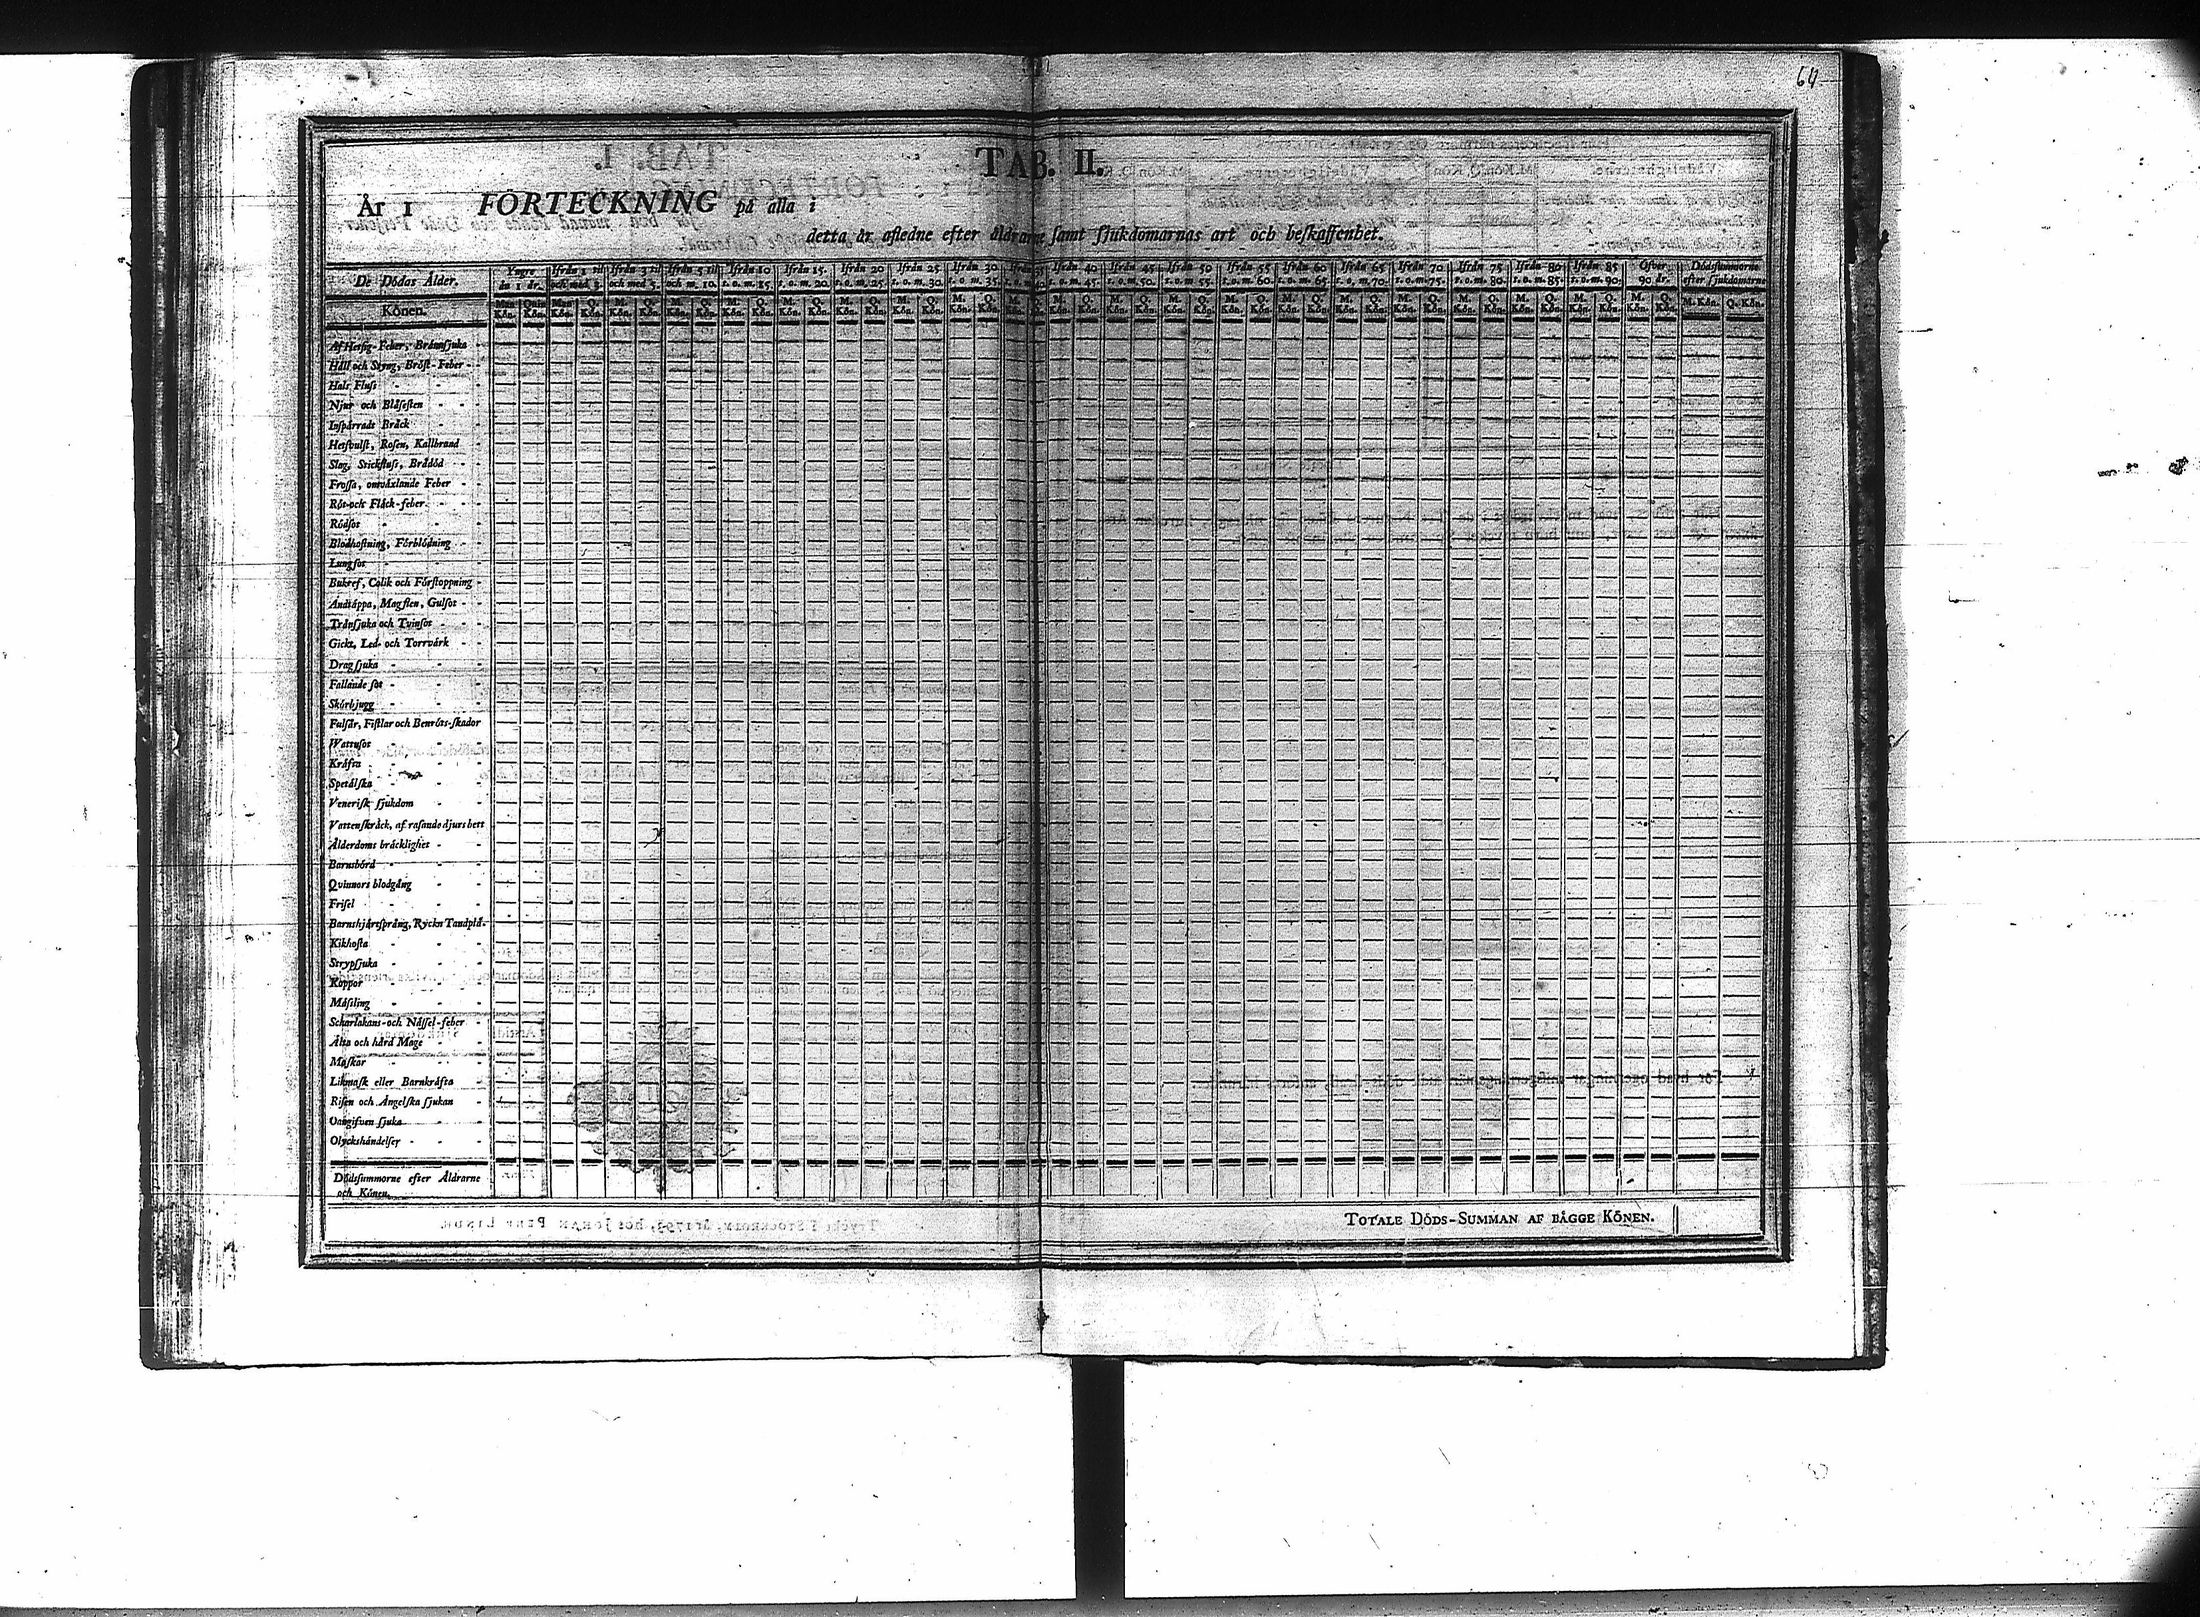 64
TAB. II.
År 1 FÖRTECKNING på alla i
detta år afledne efter åldrarne samt sjukdomarnas art och beskaffenhet.
De Dödas Ålder. Yngre än 1 år. Ifrån 1 til och med 3. Ifrån 3 til och med 5. Ifrån 5 til och m. 10. Ifrån 10 t. o. m. 15. Ifrån 15. t. o. m. 20. Ifrån 20 t. o. m. 25. Ifrån 25 t. o. m. 30. Ifrån 30 t. o. m. 35. Ifrån 35 t. o. m. 40. Ifrån 40 t. o. m. 45. Ifrån 45 t. o. m. 50. Ifrån 50 t. o. m. 55. Ifrån 55 t. o. m. 60. Ifrån 60 t. o. m. 65. Ifrån 65 t. o. m. 70. Ifrån 70 t. o. m. 75. Ifrån 75 t. o. m. 80. Ifrån 80 t. o. m. 85. Ifrån 85 t. o. m. 90. Öfver 90 år. Dödssummorne efter sjukdomarne
Könen. Man Kön. Quin Kön. Man Kön. Q. Kön. M. Kön. Q. Kön. M. Kön. Q. Kön. M. Kön. Q. Kön. M. Kön. Q. Kön. M. Kön. Q. Kön. M. Kön. Q. Kön. M. Kön. Q. Kön. M. Kön. Q. Kön. M. Kön. Q. Kön. M. Kön. Q. Kön. M. Kön. Q. Kön. M. Kön. Q. Kön. M. Kön. Q. Kön. M. Kön. Q. Kön. M. Kön. Q. Kön. M. Kön. Q. Kön. M. Kön. Q. Kön. M. Kön. Q. Kön. M. Kön. Q. Kön. M. Kön. Q. Kön.
Af Hetsig-Feber, Brännsjuka
Håll och Styng, Bröst-Feber
Hals Fluss
Njur och Blåsesten
Inspärradt Bråck
Hetsvulst, Rosen, Kallbrand
Slag, Stickfluss, Brådöd
Frossa, omväxlande Feber
Röt-och Fläck-feber
Rödsot
Blodhostning, Förblödning
Lungsot
Bukref, Colik och Förstoppning
Andtäppa, Magsten, Gulsot
Trånsjuka och Tvinsot
Gickt, Led- och Torrvärk
Dragsjuka
Fallande sot
Skörbjugg
Fulsår, Fistlar och Benröts-skador
Wattusot
Kräfta
Spetälska
Venerisk sjukdom
Vattenskräck, af rasande djurs bett
Ålderdoms bräcklighet
Barnsbörd
Qvinnors blodgång
Frisel
Barnshjärtsprång, Ryckn Tandplå.
Kikhosta
Strypsjuka
Koppor
Mässling
Scharlakans-och Nässel-feber
Älta och hård Mage
Maskar
Likmask eller Barnkräfta
Risen och Ängelska sjukan
Oangifven sjuka
Olyckshändelser
Dödssummorne efter Åldrarne
och Könen.
TOTALE DÖDS-SUMMAN AF BÄGGE KÖNEN.